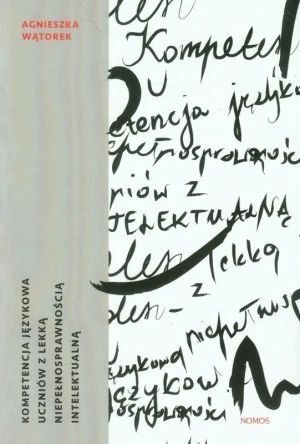 AGNIESZKA
WĄTOREK
KOMPETENCJA JĘZYKOWA
UCZNIÓW Z LEKKĄ
NIEPEŁNOSPRAWNOŚCIĄ
INTELEKTUALNĄ
len
Kompeten
U
etencja język
epełnosprawnośc
niów z
TELEKTUALNĄ
lekką
len- z
niepełnosp
językowa
języków
nosprawności
NOMOS